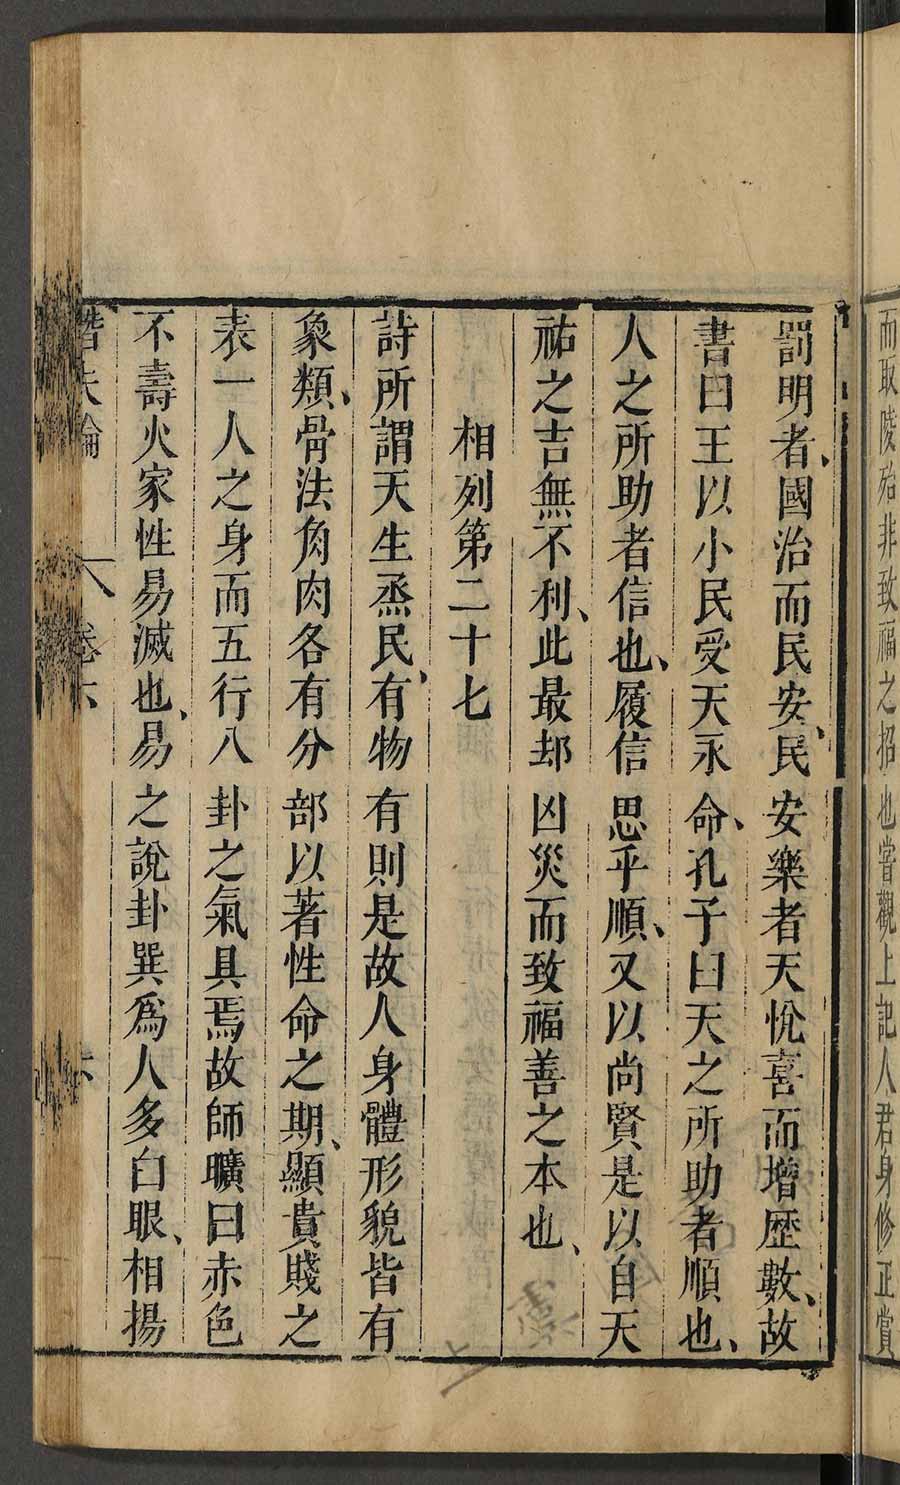 而取陵殆非致福之招也嘗觀上記人君身修正賞
罰明者、國治而民安、民安樂者天悅喜而增歷數、故
書曰王以小民受天永命、孔子曰天之所助者順也、
人之所助者信也、履信思乎順、又以尚賢是以自天
祐之吉無不利、此最却凶災而致福善之本也、
相列第二十七
詩所謂天生烝民、有物有則是故人身體形貌皆有
象類、骨法角肉各有分部以著性命之期、顯貴賤之
表一人之身而五行八卦之氣具焉故師曠曰赤色
不壽火家性易滅也、易之說卦巽爲人多白眼、相揚
潛夫論 卷六 六